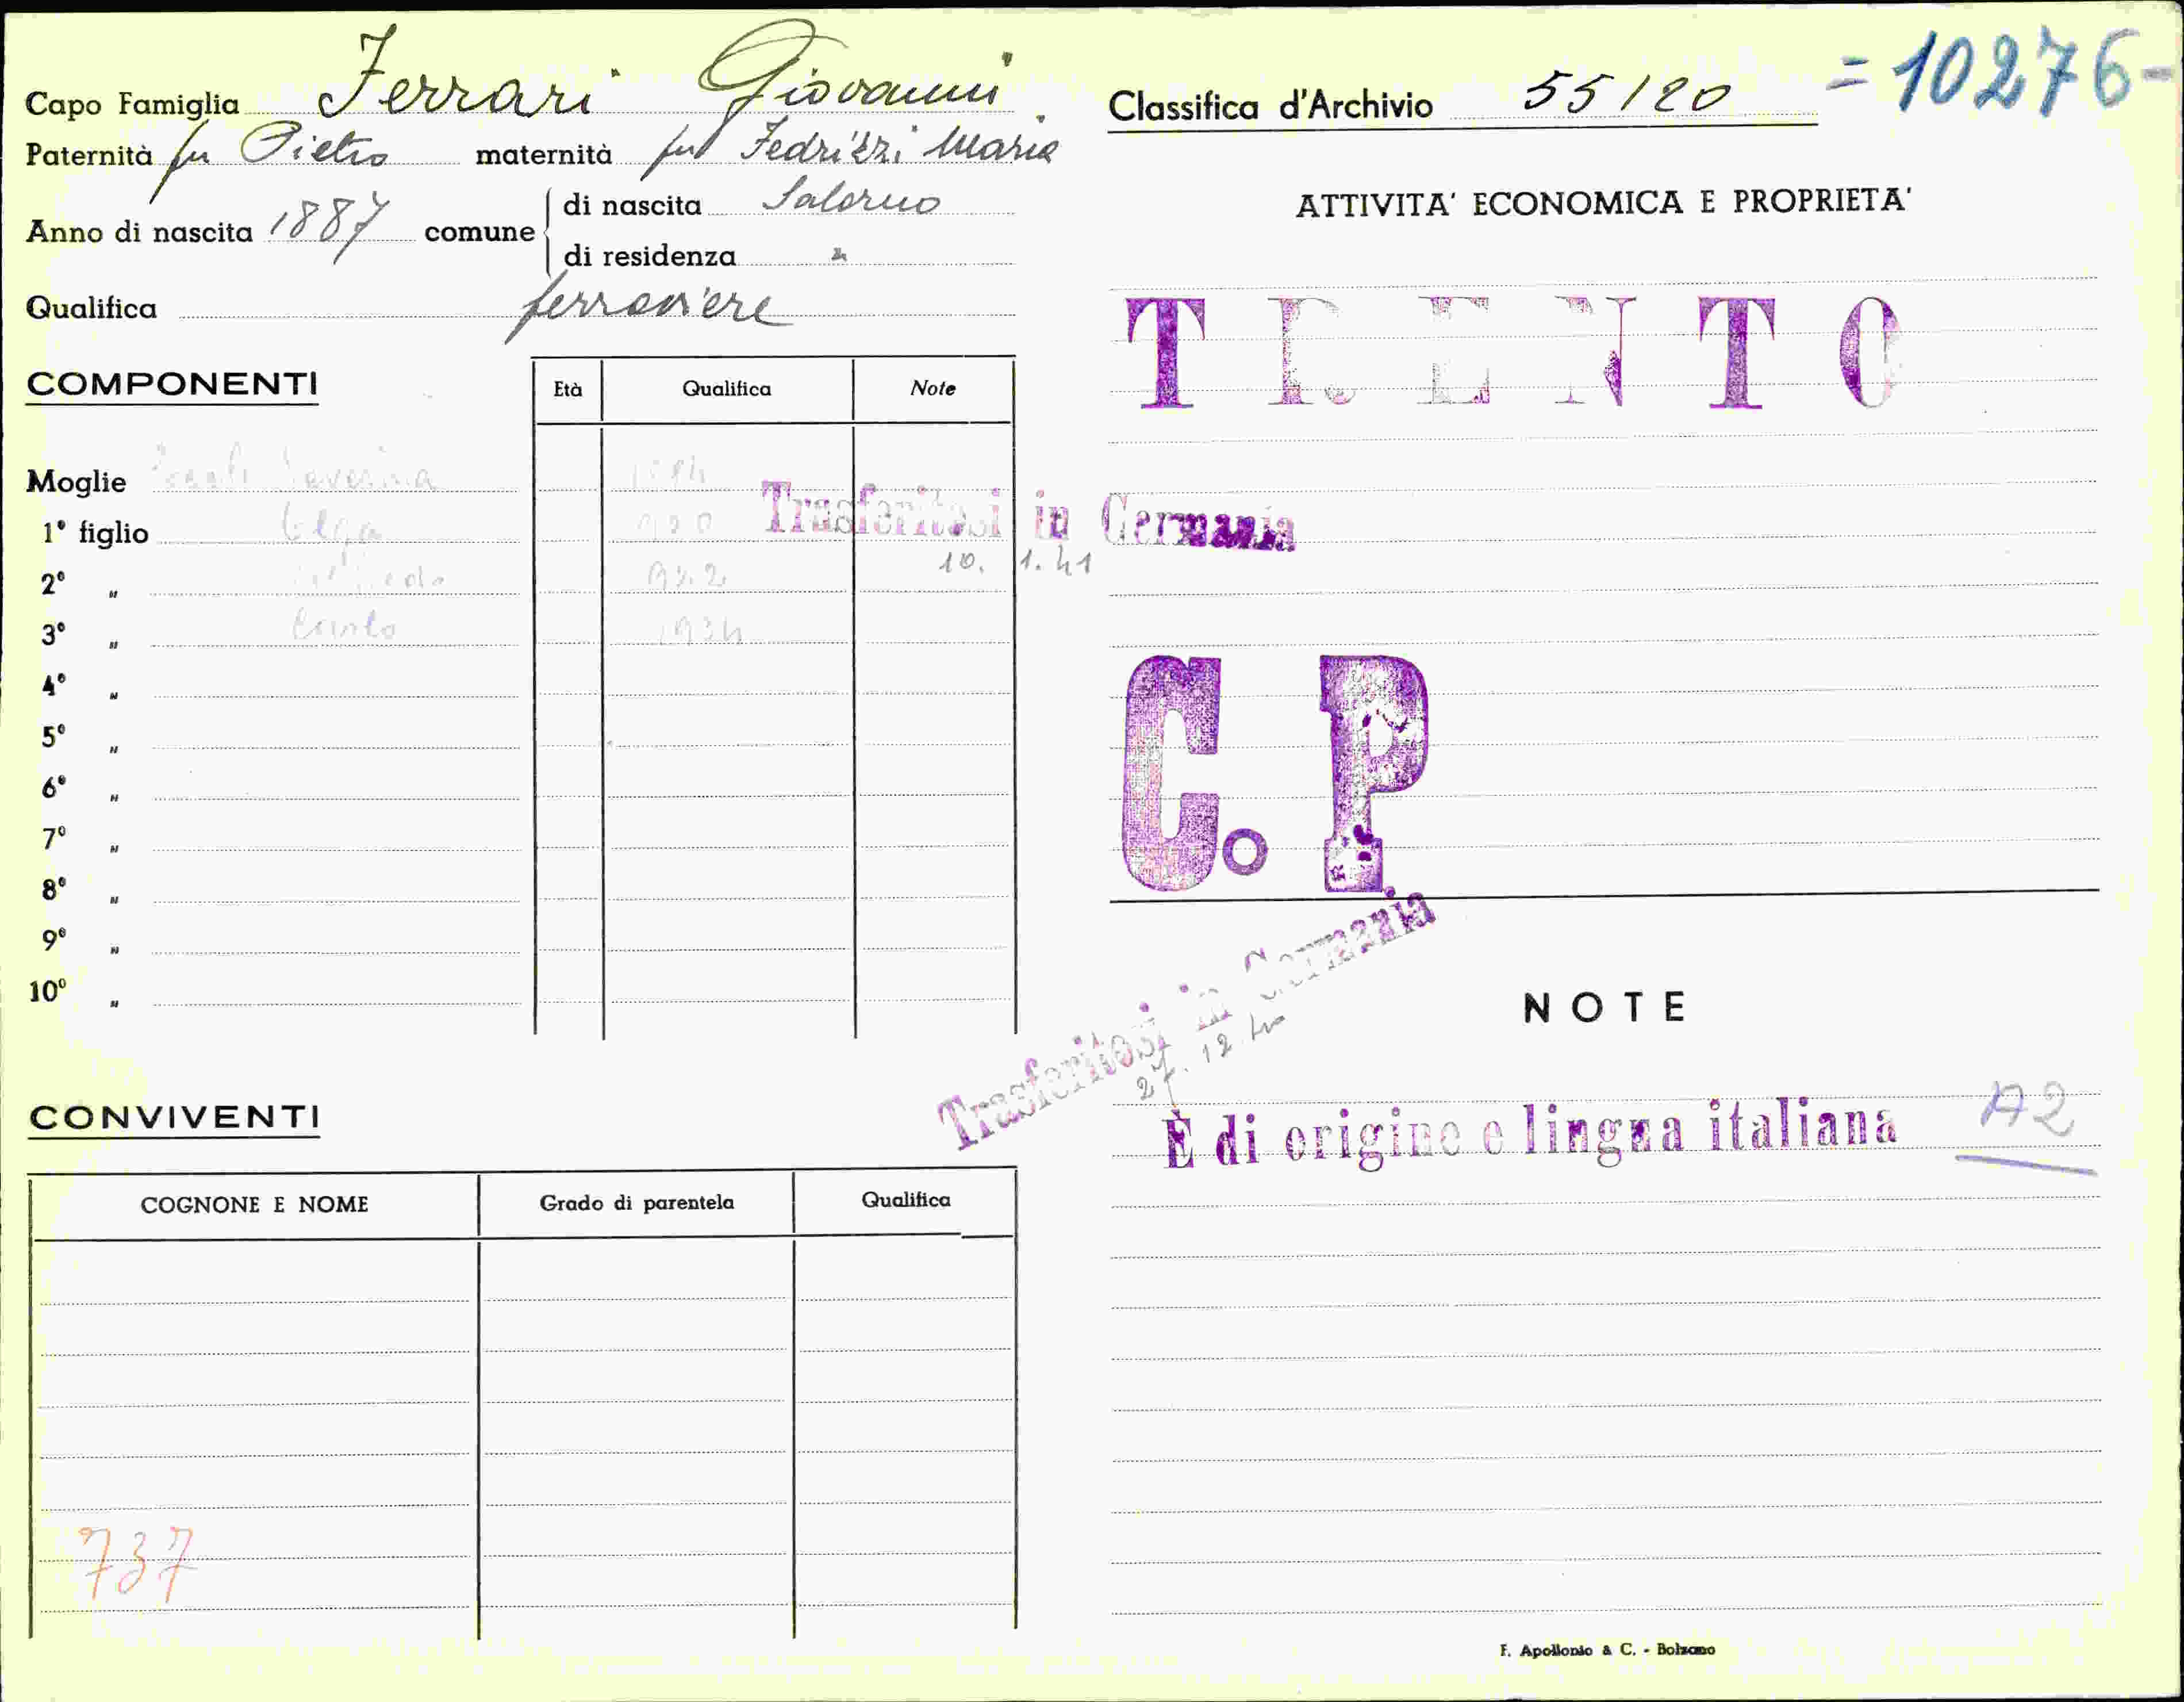 Capo Famiglia Ferrari Giovanni
Paternità fu Pietro maternità fu Fedrizzi Maria
Anno di nascita 1887 comune di nascita Salorno
di residenza "
Qualifica ferroviere
COMPONENTI Età Qualifica Note
Moglie Severina 1894
1° figlio Olga 920
2° " 922
3° " 1934
4° "
5° "
6° "
7° "
8° "
9° "
10° "
Trasferitosi in Germania
10. 1. 41
CONVIVENTI
COGNONE E NOME Grado di parentela Qualifica
737
Classifica d'Archivio 55/20 = 10276-
ATTIVITA' ECONOMICA E PROPRIETA'
TRENTO
C. P
Trasferitosi in Germania
27. 12. 40
NOTE
È di origine e lingua italiana A2
F. Apollonio & C. - Bolzano